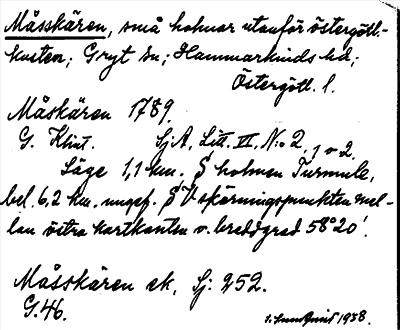 Måsskären, små holmar utanför östergötl.-
kusten; Gryt sn; Hammarkinds hd;
Östergötl. l.
Måskären 1789.
G. Klint. Sj A, Litt. VI, N:o 2, 1 o 2.
Läge 1,1 km. S holmen Turmule,
bel. 6,2 km. ungef. S V skärningspunkten mel-
lan östra kartkanten o. breddgrad 58°20'.
Måsskären ek, Sj: 252.
G. 46.
1938.